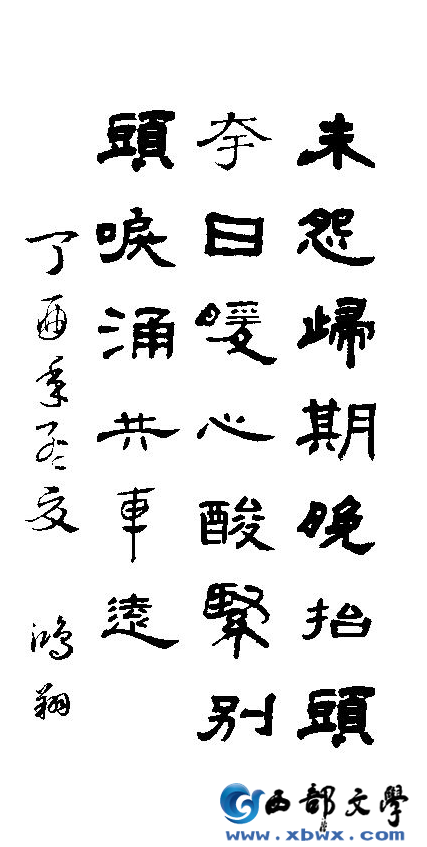 未怨歸期晚抬頭
夸日暖心酸緊別
頭唳涌共車遠
丁酉季 鴻翔
西部文學
www.xbwx.com